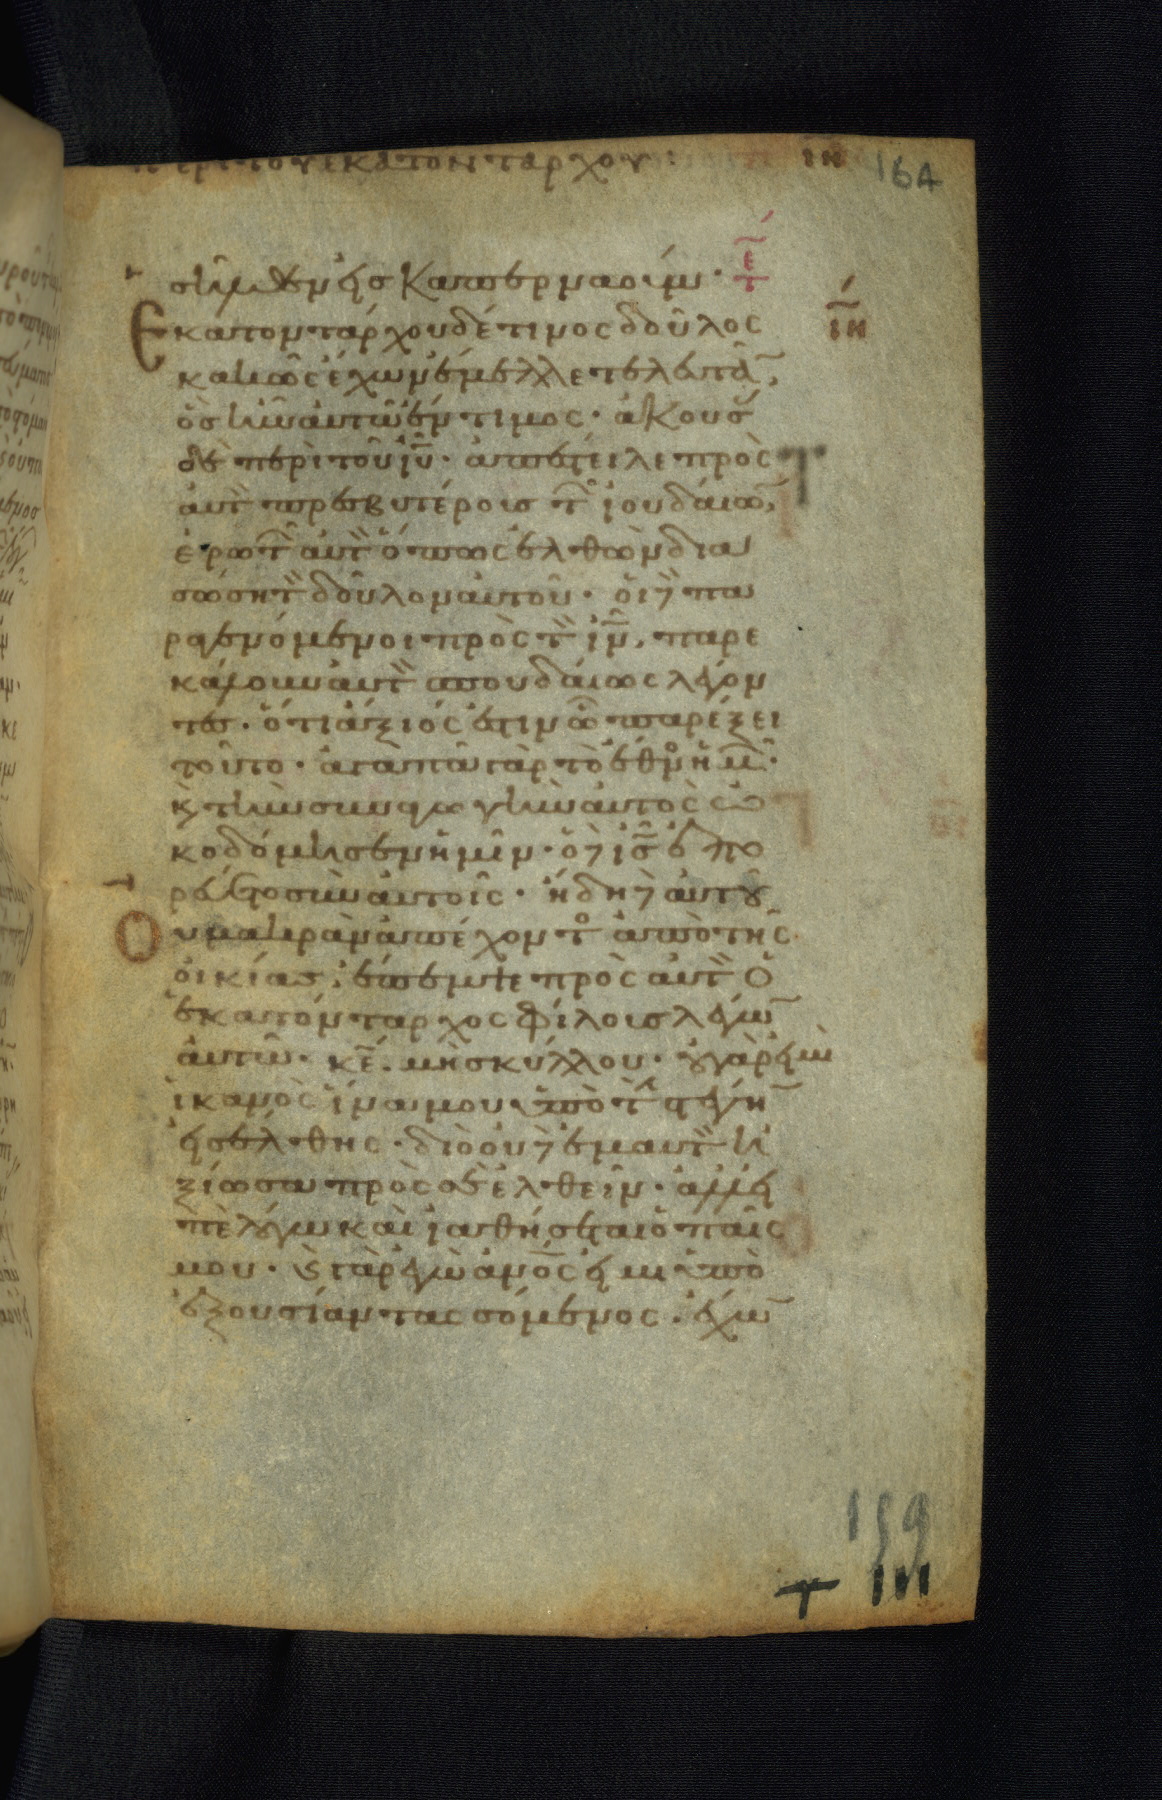 περι του εκατονταρχου : ιη 164
σῆλθεν εἰς Καπερναούμ · ξε τ
Εκατοντάρχου δέ τινος δοῦλος ιη
κακῶς ἔχων ἔμελλε τελευτᾶ͂,
ὃς ἦν αὐτῶ ἔντιμος · ἀκούσ
δὲ περὶ τοῦ ἰῦ · ἀπέστειλε πρὸς
αὐτ πρεσβυτέρους τ ἰουδαίω,
ἐρωτ αὐτ ὅπως ἐλθὼν δια
σώση τ δοῦλον αὐτοῦ · οἱ δ πα
ραγενόμενοι πρὸς τ ἰν, παρε
κάλουν αὐτ σπουδαίως λέγον
τες · ὅτι ἄξιός ἐστιν ὧ παρέξει
τοῦτο · ἀγαπᾶ γὰρ τὸ ἔθν ἡμ ·
κ τὴν συναγωγὴν αὐτὸς ὠ
κοδόμησεν ἡμῖν · ὁ δ ἰς ἐπο
ρεύετο σὺν αὐτοῖς · ἤδη δ αὐτοῦ
Ου μακρὰν ἀπέχοντ ἀπὸ τῆς
οἰκίας, ἔπεμψε πρὸς αὐτ ὁ
ἑκατόνταρχος φίλους λέγω
αὐτῶ · κε · μὴ σκύλλου · οὐ γὰρ εἰμὶ
ἱκανὸς ἵνα μου ὑπὸ τ στέγη
εἰσέλθης · διὸ οὐδ ἐμαυτ ἠ
ξίωσα πρὸς σὲ ἐλθεῖν · ἀλλὰ εἰ
πὲ λόγω καὶ ἰαθήσεται ὁ παῖς
μου · κ γὰρ ἐγὼ ἀνος εἰμι ὑπὸ
ἐξουσίαν τασσόμενος · ἔχω
159
τ ιη